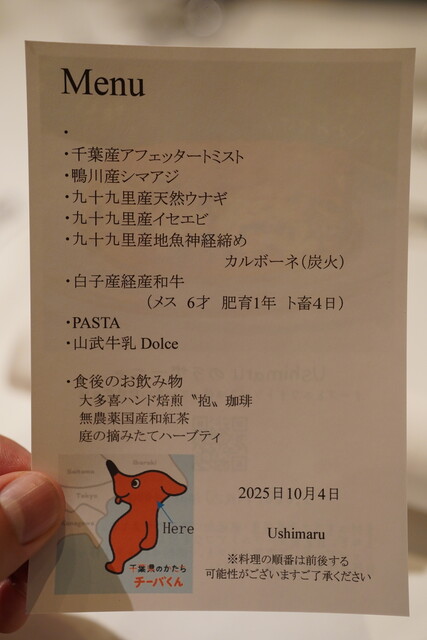 Menu
・
・千葉産アフェッタートミスト
・鴨川産シマアジ
・九十九里産天然ウナギ
・九十九里産イセエビ
・九十九里産地魚神経締め
カルボーネ(炭火)
・白子産経産和牛
(メス 6才 肥育1年 ト畜4日)
・PASTA
・山武牛乳 Dolce
・食後のお飲み物
大多喜ハンド焙煎〝抱〟珈琲
無農薬国産和紅茶
庭の摘みたてハーブティ
Saitama
Ibaraki
Tokyo
Kanagawa
Here
千葉県のかたち
チーバくん
2025日10月4日
Ushimaru
※料理の順番は前後する
可能性がございますご了承ください